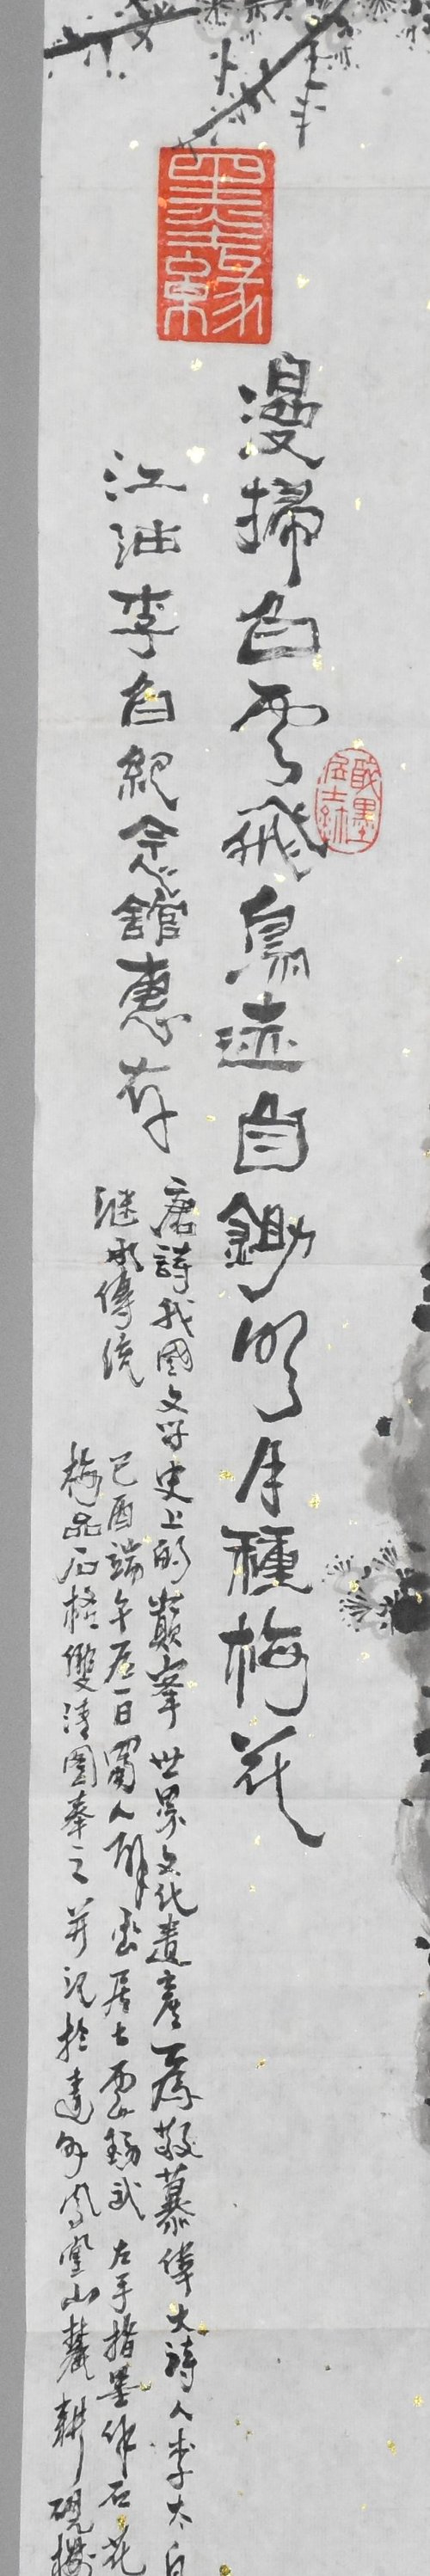 漫掃白雲飛鳥迹自鋤明月種梅花
江油李白紀念館惠存
唐詩我國文学史上的巔峯世界文化遺產 為敬慕偉大詩人李太白
继承傳统
己酉端午后一日蜀人 雲居士 錫武左手指墨作石花
梅品石格雙清圖奉之并记於達州鳳凰山麓耕硯樓
墨緣